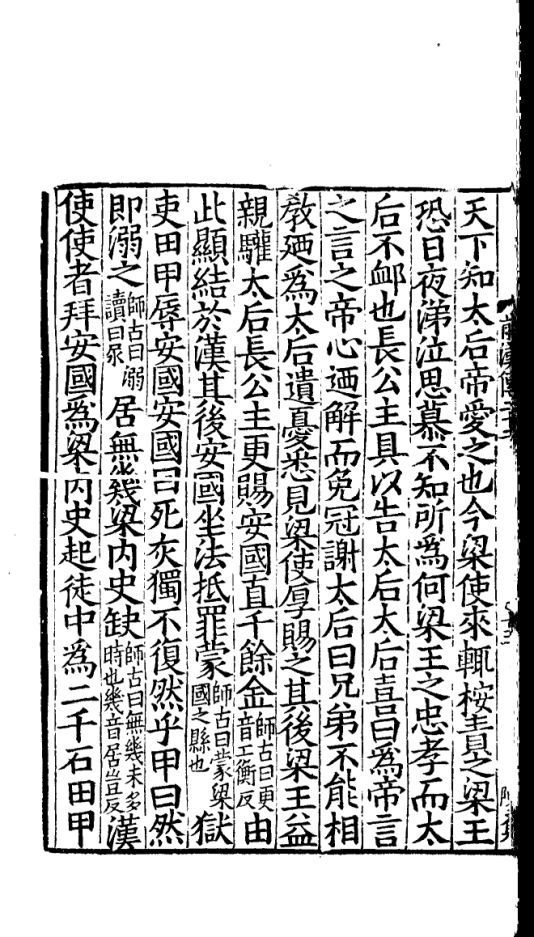 天下知太后帝愛之也今梁使來輒桉責之梁王
恐日夜涕泣思慕不知所爲何梁王之忠孝而太
后不卹也長公主具以告太后太后喜曰爲帝言
之言之帝心廼解而免冠謝太后曰兄弟不能相
敎廼爲太后遺憂悉見梁使厚賜之其後梁王益
親驩太后長公主更賜安國直千餘金師古曰更音工衡反由
此顯結於漢其後安國坐法抵罪蒙師古曰蒙梁國之縣也獄
吏田甲辱安國安國曰死灰獨不復然乎甲曰然
即溺之師古曰溺讀曰尿居無幾梁内史缺師古曰無幾未多時也幾音居豈反漢
使使者拜安國爲梁内史起徒中爲二千石田甲